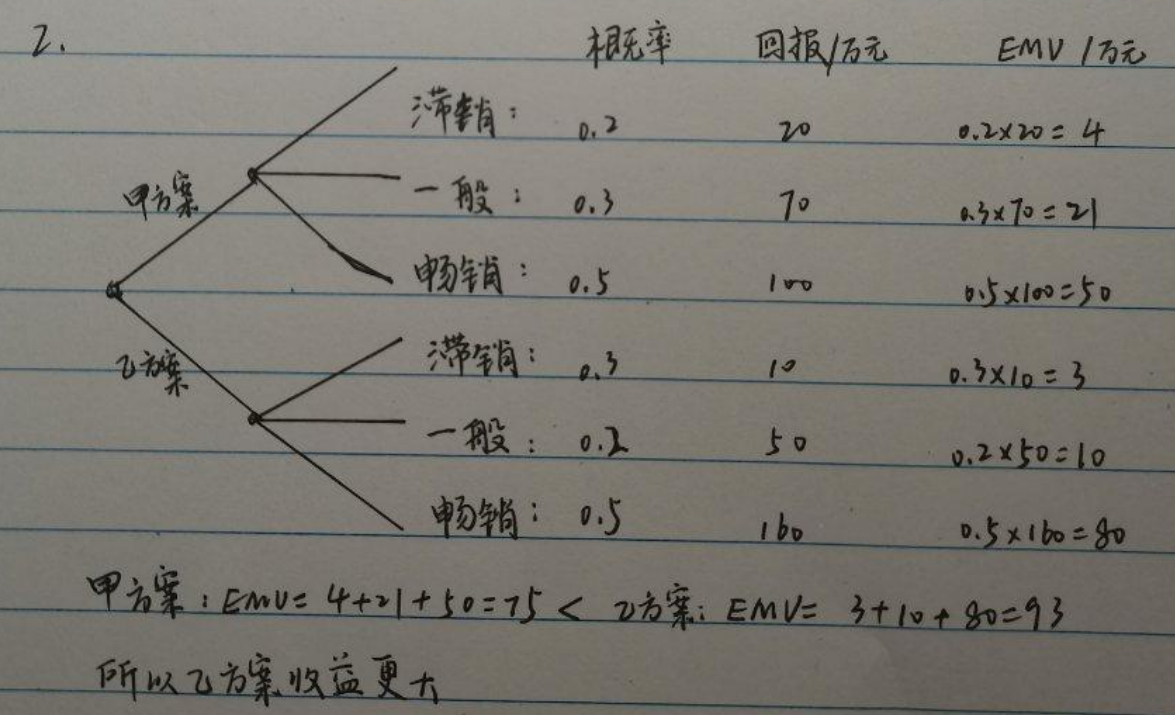 2.
概率 回报/万元 EMV/万元
滞销: 0.2 20 0.2×20=4
甲方案 一般: 0.3 70 0.3×70=21
畅销: 0.5 100 0.5×100=50
乙方案 滞销: 0.3 10 0.3×10=3
一般: 0.2 50 0.2×50=10
畅销: 0.5 160 0.5×160=80
甲方案: EMV=4+21+50=75< 乙方案: EMV= 3+10+80=93
所以乙方案收益更大